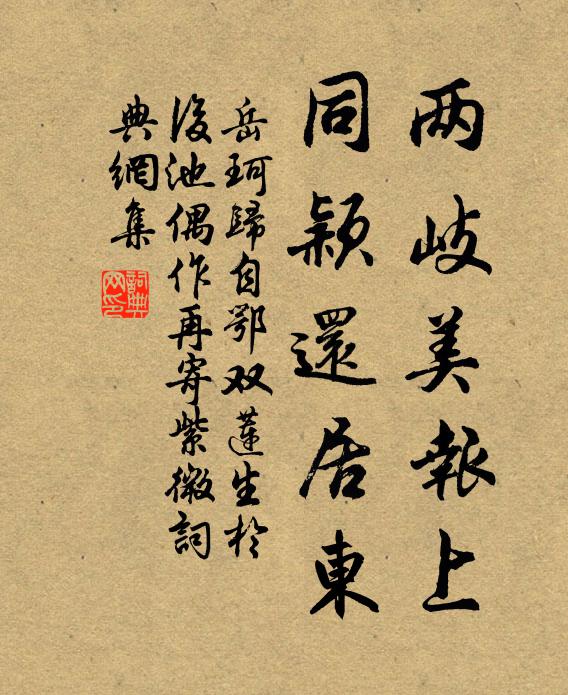 两岐美报上
同颖還居東
岳珂歸自鄂双蓮生於
後池偶作再寄紫微詞
典網集
詞典网印